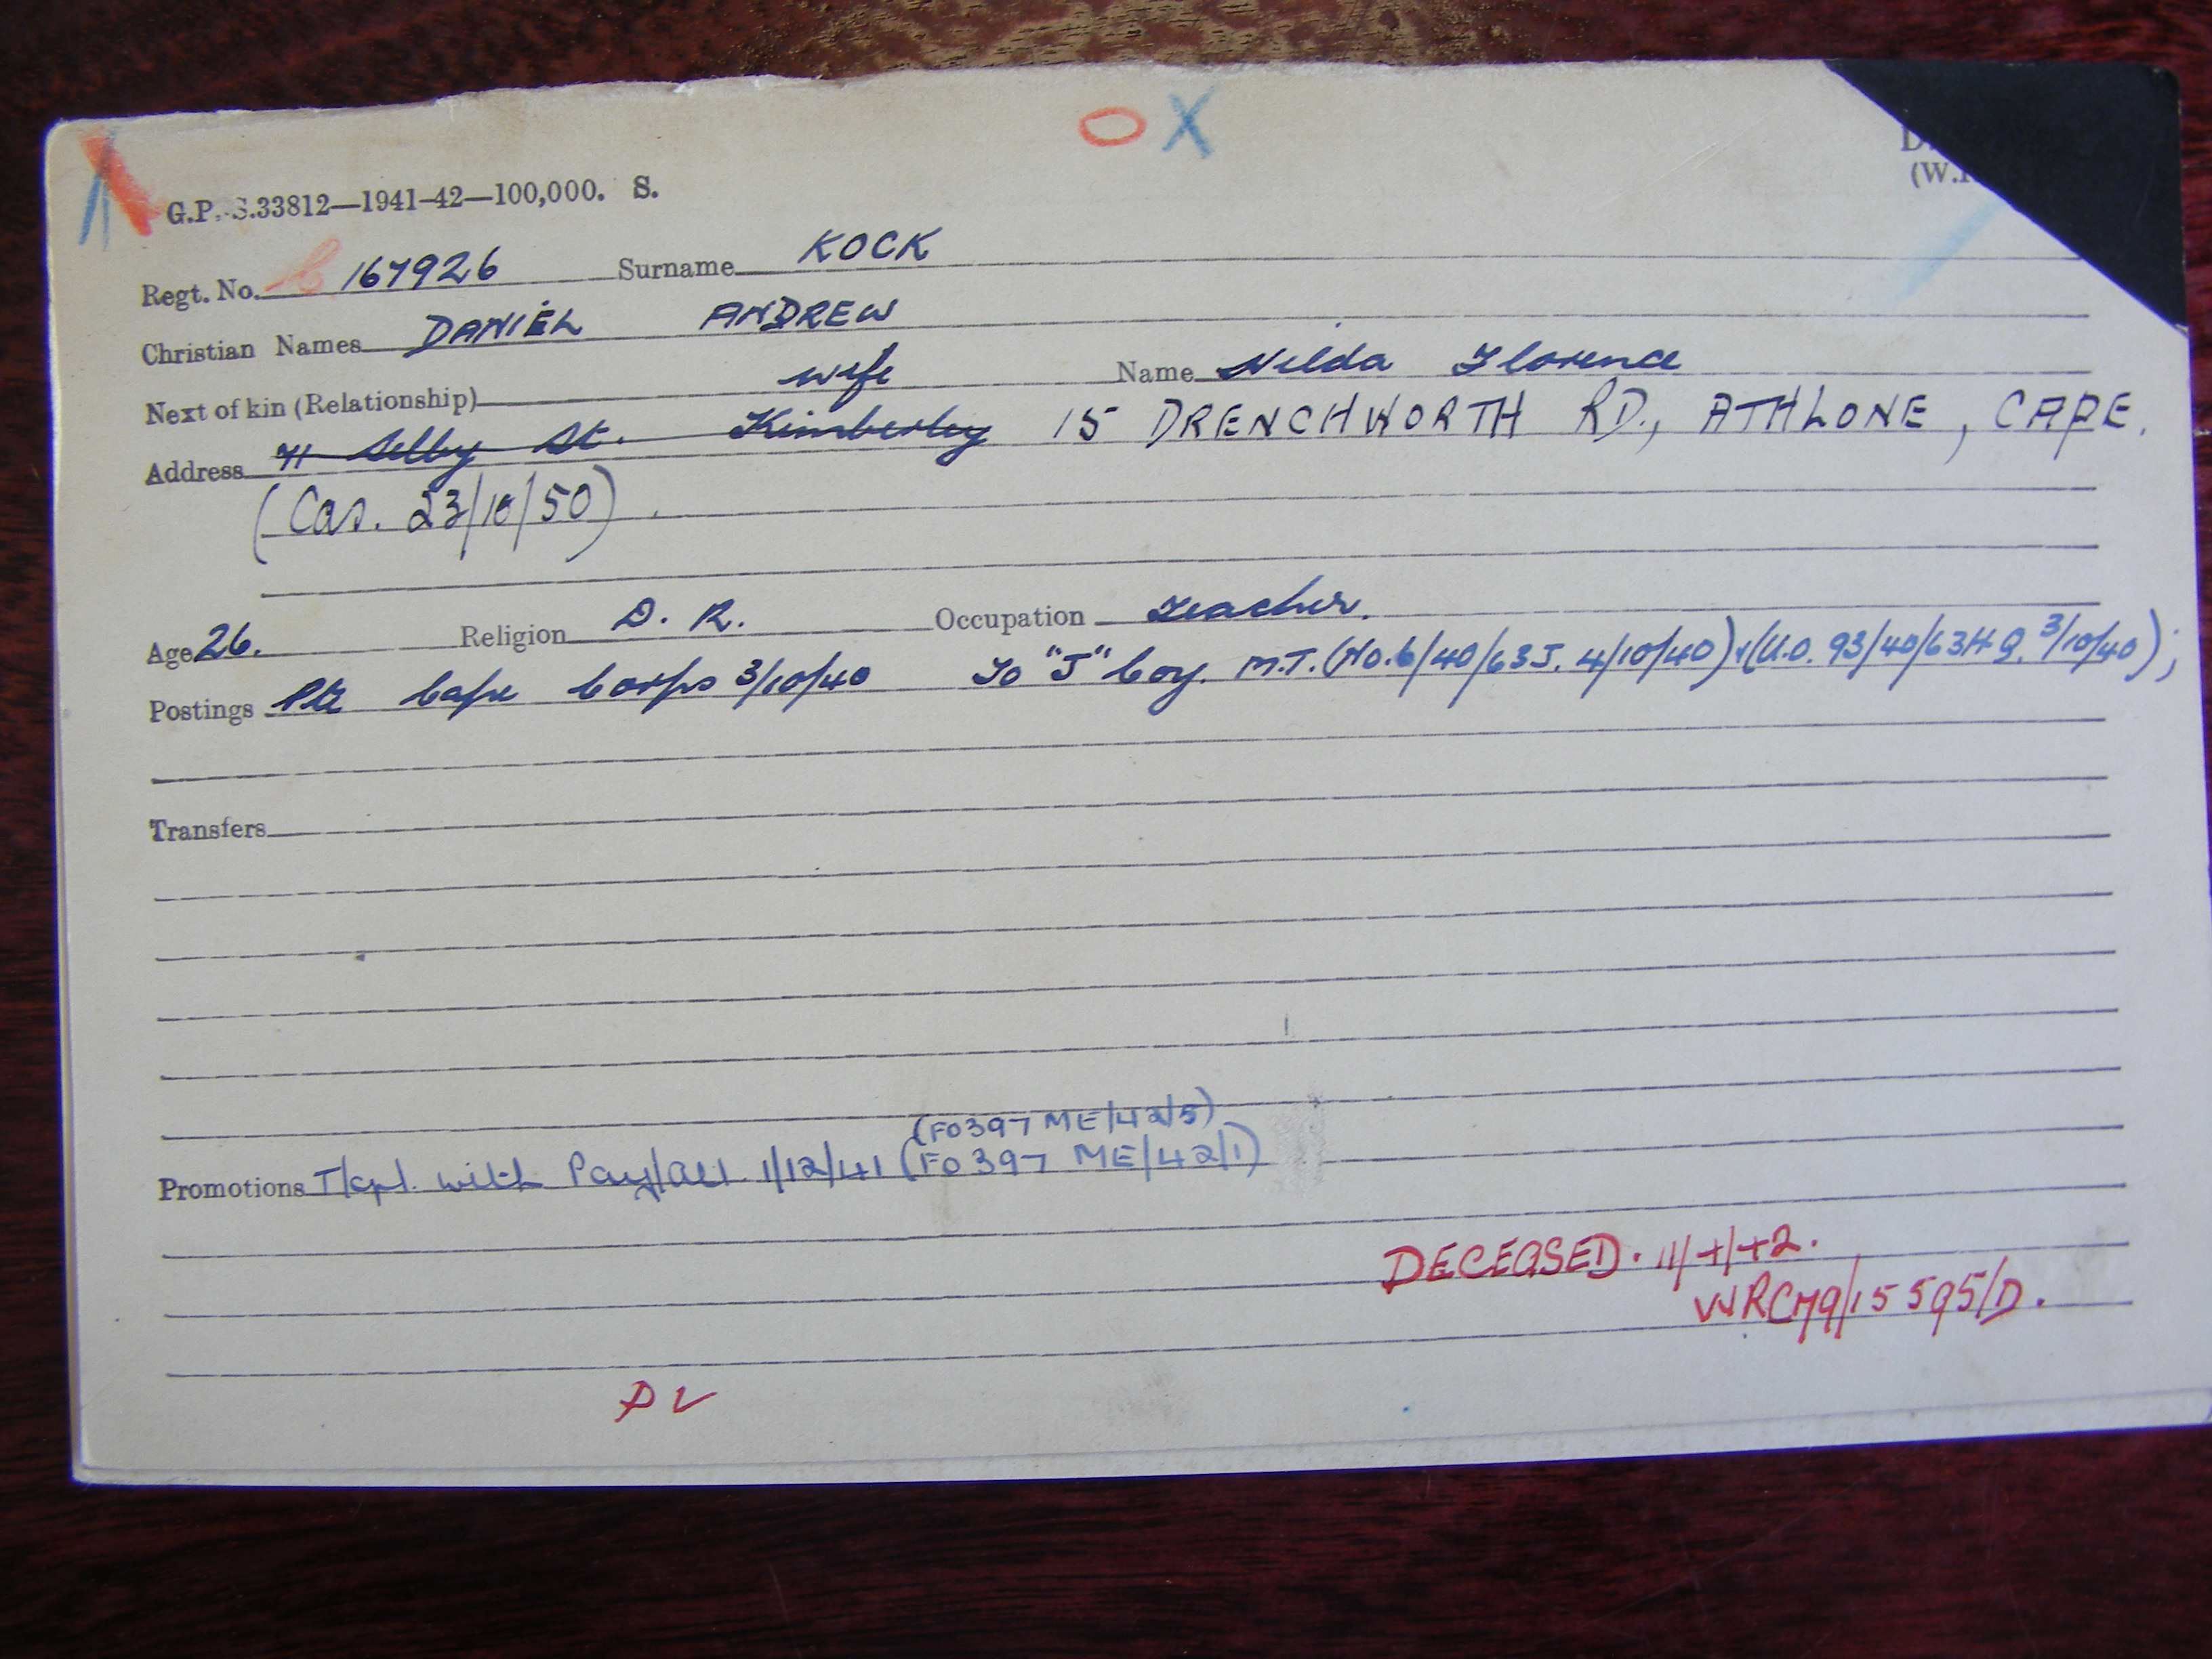 O X
D.
(W.
G.P.-S.33812—1941-42—100,000. S.
Regt. No. C 167926 Surname KOCK
Christian Names DANIEL ANDREW
Next of kin (Relationship) wife Name Hilda Florence
Address 41 Selby St. Kimberley 15 DRENCHWORTH RD., ATHLONE, CAPE.
(Cas. 23/10/50).
Age 26. Religion D. R. Occupation Teacher.
Postings Pte Cape Corps 3/10/40 To "J" Coy. M.T. (No.6/40/63J. 4/10/40) (U.O. 93/40/63HQ. 3/10/40);
Transfers
(FO397 ME/42/5)
Promotions T/cpl. with Pay/all. 1/12/41 (FO397 ME/42/1)
DECEASED. 11/4/42.
WRCM9/15595/D.